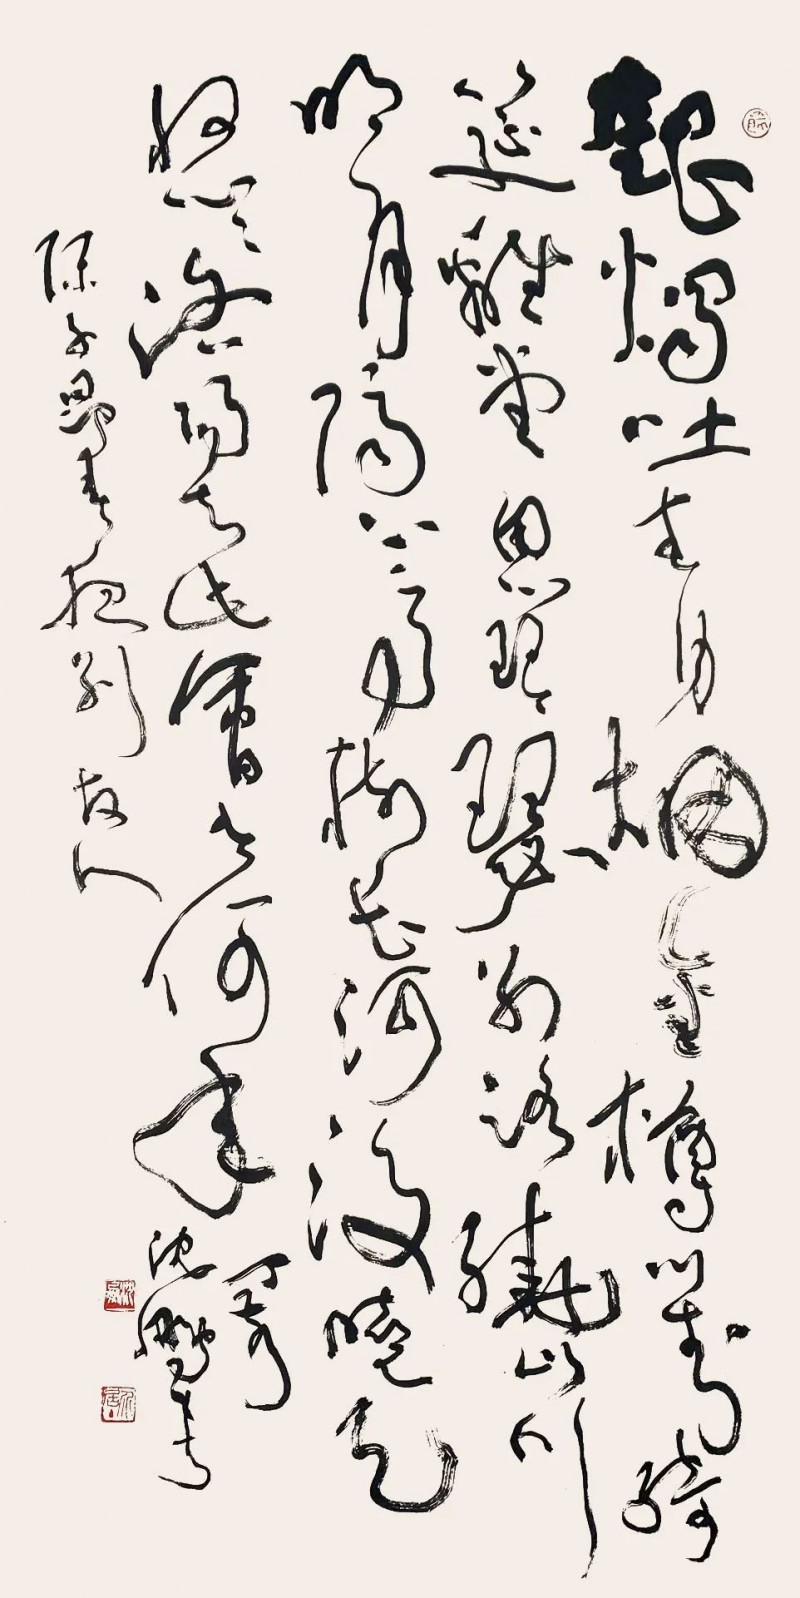 银烛吐青烟金樽对绮
筵离堂思琴瑟别路绕山川
明月隐高树长河没晓天
悠悠洛阳去此会在何年
丁亥
沈鹏书
陈子昂春夜别友人